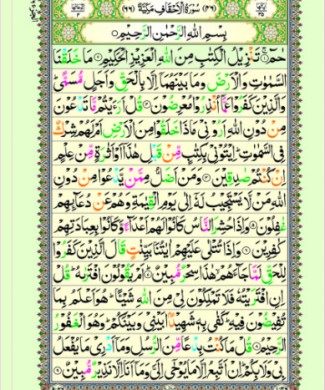 (٤٦) سُوْرَةُ الْاَحْقَافِ مَكِّيَّةٌ (٦٦)
بِسْمِ اللهِ الرَّحْمٰنِ الرَّحِيْمِ
حٰمٓ تَنْزِيْلُ الْكِتٰبِ مِنَ اللهِ الْعَزِيْزِ الْحَكِيْمِ مَا خَلَقْنَا
السَّمٰوٰتِ وَالْاَرْضَ وَمَا بَيْنَهُمَآ اِلَّا بِالْحَقِّ وَاَجَلٍ مُّسَمًّى
وَالَّذِيْنَ كَفَرُوْا عَمَّآ اُنْذِرُوْا مُعْرِضُوْنَ قُلْ اَرَءَيْتُمْ مَّا تَدْعُوْنَ
مِنْ دُوْنِ اللهِ اَرُوْنِيْ مَاذَا خَلَقُوْا مِنَ الْاَرْضِ اَمْ لَهُمْ شِرْكٌ
فِى السَّمٰوٰتِ اِيْتُوْنِيْ بِكِتٰبٍ مِّنْ قَبْلِ هٰذَآ اَوْ اَثٰرَةٍ مِّنْ عِلْمٍ
اِنْ كُنْتُمْ صٰدِقِيْنَ وَمَنْ اَضَلُّ مِمَّنْ يَّدْعُوْا مِنْ دُوْنِ
اللهِ مَنْ لَّا يَسْتَجِيْبُ لَهٗٓ اِلٰى يَوْمِ الْقِيٰمَةِ وَهُمْ عَنْ دُعَآئِهِمْ
غٰفِلُوْنَ وَاِذَا حُشِرَ النَّاسُ كَانُوْا لَهُمْ اَعْدَآءً وَّكَانُوْا بِعِبَادَتِهِمْ
كٰفِرِيْنَ وَاِذَا تُتْلٰى عَلَيْهِمْ اٰيٰتُنَا بَيِّنٰتٍ قَالَ الَّذِيْنَ كَفَرُوْا
لِلْحَقِّ لَمَّا جَآءَهُمْ هٰذَا سِحْرٌ مُّبِيْنٌ اَمْ يَقُوْلُوْنَ افْتَرٰىهُ قُلْ
اِنِ افْتَرَيْتُهٗ فَلَا تَمْلِكُوْنَ لِيْ مِنَ اللهِ شَيْئًا هُوَ اَعْلَمُ بِمَا
تُفِيْضُوْنَ فِيْهِ كَفٰى بِهٖ شَهِيْدًۢا بَيْنِيْ وَبَيْنَكُمْ وَهُوَ الْغَفُوْرُ
الرَّحِيْمُ قُلْ مَا كُنْتُ بِدْعًا مِّنَ الرُّسُلِ وَمَآ اَدْرِيْ مَا يُفْعَلُ
بِيْ وَلَا بِكُمْ اِنْ اَتَّبِعُ اِلَّا مَا يُوْحٰٓى اِلَيَّ وَمَآ اَنَا اِلَّا نَذِيْرٌ مُّبِيْنٌ